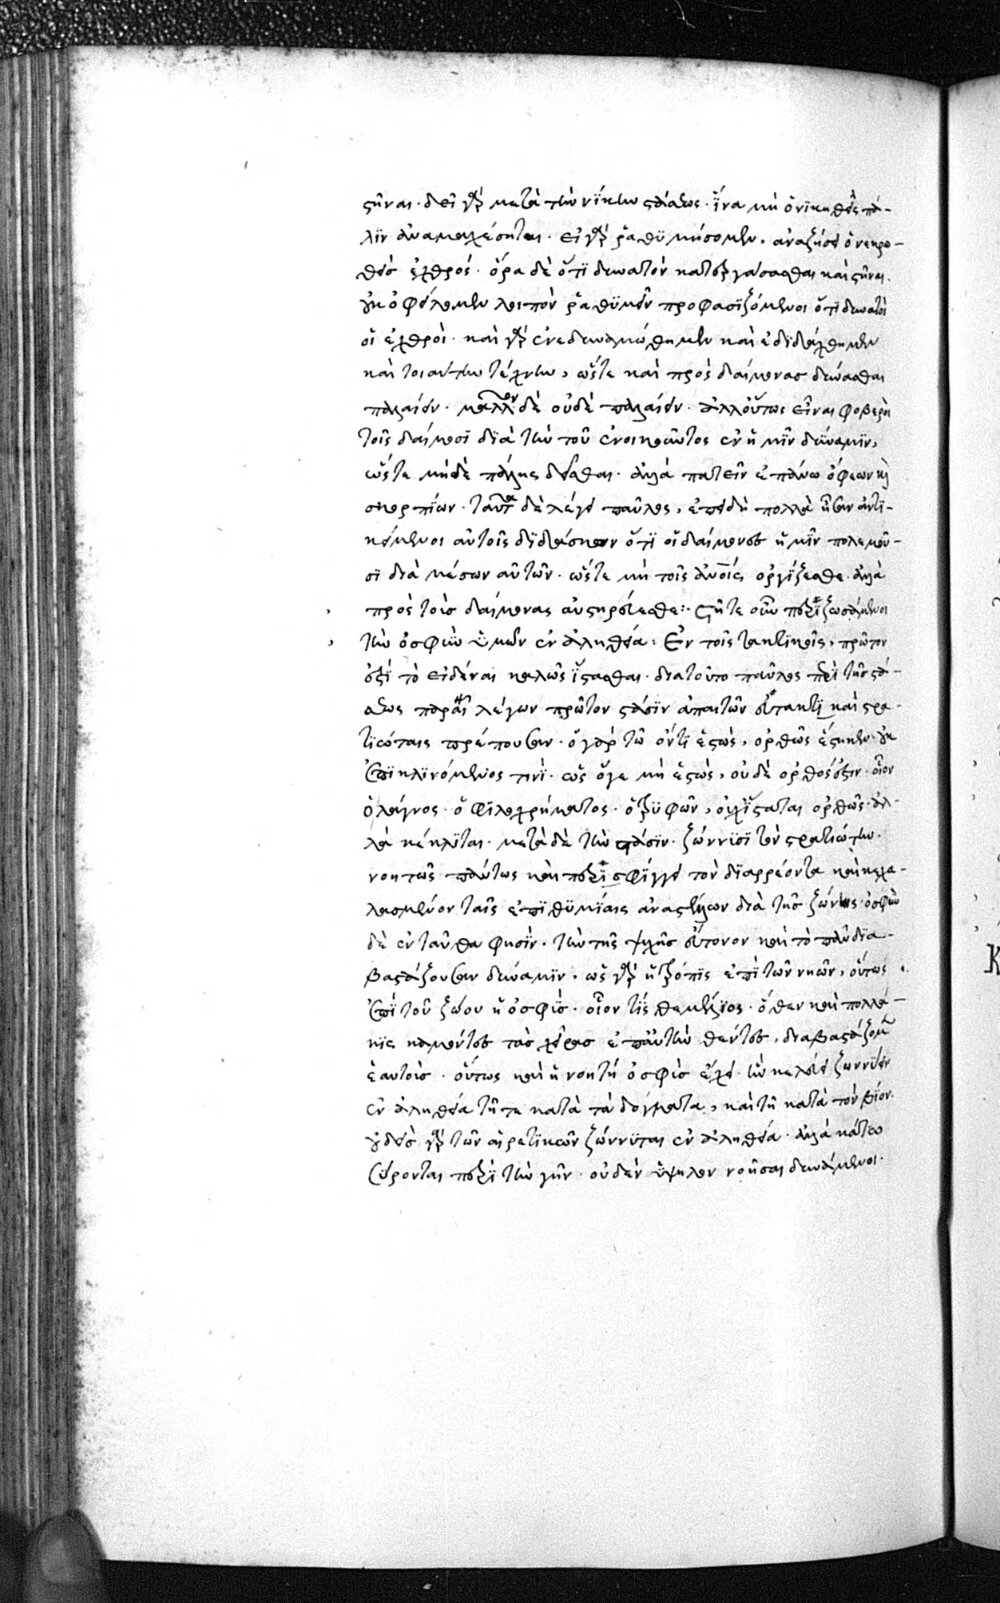 στῆναι· δεῖ γὰρ μετὰ τὴν νίκην στάσεως· ἵνα μὴ ὁ νικηθεὶς πά-
λιν ἀναμαχέσηται· εἰ γὰρ ῥαθυμήσομεν, ἀναζήσει ὁ νεκρω-
θεὶς ἐχθρός· ὅρα δὲ ὅτι δυνατὸν κατεργάσασθαι καὶ στῆναι.
οὐκ ὀφείλομεν λοιπὸν ῥαθυμεῖν προφασιζόμενοι ὅτι δυνατοὶ
οἱ ἐχθροί· καὶ γὰρ ἐνεδυναμώθημεν καὶ ἐδιδάχθημεν
καὶ τοιαύτην τέχνην, ὥστε καὶ πρὸς δαίμονας δύνασθαι
παλαίειν· μᾶλλον δὲ οὐδὲ παλαίειν· ἀλλ' οὕτως εἶναι φοβεροὺς
τοῖς δαίμοσι διὰ τὴν τοῦ ἐνοικοῦντος ἐν ἡμῖν δύναμιν,
ὥστε μηδὲ πάλης δεῖσθαι· ἀλλὰ πατεῖν ἐπάνω ὄφεων καὶ
σκορπίων· ταῦτα δὲ λέγει παῦλος, ἐπειδὴ πολλὰ ἦσαν ἀντι-
κείμενοι αὐτοῖς διδάσκων ὅτι οἱ δαίμονες ἡμῖν πολεμοῦ-
σι διὰ μέσων αὐτῶν· ὥστε μὴ τοῖς ἀνοις ὀργίζεσθε ἀλλὰ
πρὸς τοὺς δαίμονας αὐστηρεύεσθε:· Στῆτε οὖν περιζωσάμενοι
τὴν ὀσφὺν ὑμῶν ἐν ἀληθείᾳ: Ἐν τοῖς τακτικοῖς, πρῶτον
ἐστὶ τὸ εἰδέναι καλῶς ἵστασθαι· διατοῦτο παῦλος περὶ τῆς στά-
σεως παραινεῖ λέγων πρῶτον στάσιν ἀπαιτῶν εὔτακτον καὶ στρα-
τιώταις πρέπουσαν· ὁ γὰρ τῷ ὄντι ἑστὼς, ὀρθῶς ἕστηκεν οὐκ
ἐπικλινόμενος τινὶ· ὡς ὅγε μὴ ἑστὼς, οὐδὲ ὀρθός ἐστιν· οἷον
ὁ λάγνος· ὁ φιλοχρήματος· ὁ τρυφῶν, οὐχ ἵσταται ὀρθῶς· ἀλ-
λὰ κέκλιται· μετὰ δὲ τὴν στάσιν· ζώννυσι τὸν στρατιώτην·
νοητῶς πάντως καὶ περισφίγγει τὸν διαρρέοντα καὶ κεχα-
λασμένον ταῖς ἐπιθυμίαις ἀναστέλλων διὰ τῆς ζώνης· ὀσφὺν
δὲ ἐνταῦθα φησὶν· τὴν τῆς ψυχῆς εὔτονον καὶ τὸ πᾶν δια-
βαστάζουσαν δύναμιν· ὡς γὰρ ἡ τρόπις ἐπὶ τῶν νηῶν, οὕτως
ἐπὶ τοῦ ζώου ἡ ὀσφὺς· οἷον τίς θεμέλιος· ὅθεν καὶ πολλά-
κις καμόντες τὰς χεῖρας ἐπ' αὐτὴν θέντες, διαβαστάζομεν
ἑαυτούς· οὕτως καὶ ἡ νοητὴ ὀσφὺς ἔχει· ἣν κελεύει ζωννύειν
ἐν ἀληθείᾳ τῇ τε κατὰ τὰ δόγματα, καὶ τῇ κατὰ τὸν βίον·
οὐδεὶς γὰρ τῶν αἱρετικῶν ζώννυται ἐν ἀληθείᾳ· ἀλλὰ κάτω
σύρονται περὶ τὴν γῆν· οὐδὲν ὑψηλὸν νοῆσαι δυνάμενοι·